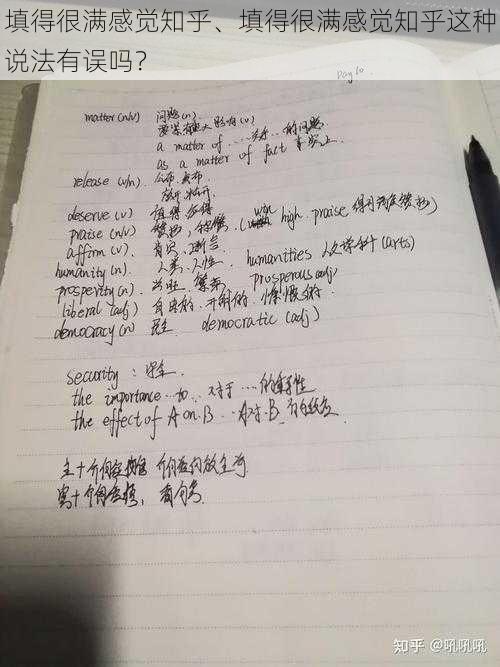 填得很满感觉知乎、填得很满感觉知乎这种
说法有误吗？
Day 10
matter (n/v) 问题(n)
要紧 有重大影响(v)
a matter of ……的问题
as a matter of fact 事实上
release (v/n) 公布 发布
deserve (v) 值得 应得
praise (n/v) 赞扬, 称赞. (win high praise 得到高度赞扬)
affirm (v). 肯定、断言
humanity (n). 人类, 人性. humanities 人文学科 (arts)
prosperity (n) 兴旺 繁荣 prosperous adj
liberal (adj) 自由的. 开明的. 慷慨的.
democracy (n) 民主 democratic (adj)
security : 安全
the importance to ... 对于 ... 的重要性
the effect of A on B ... A对B
知乎 @吼吼吼